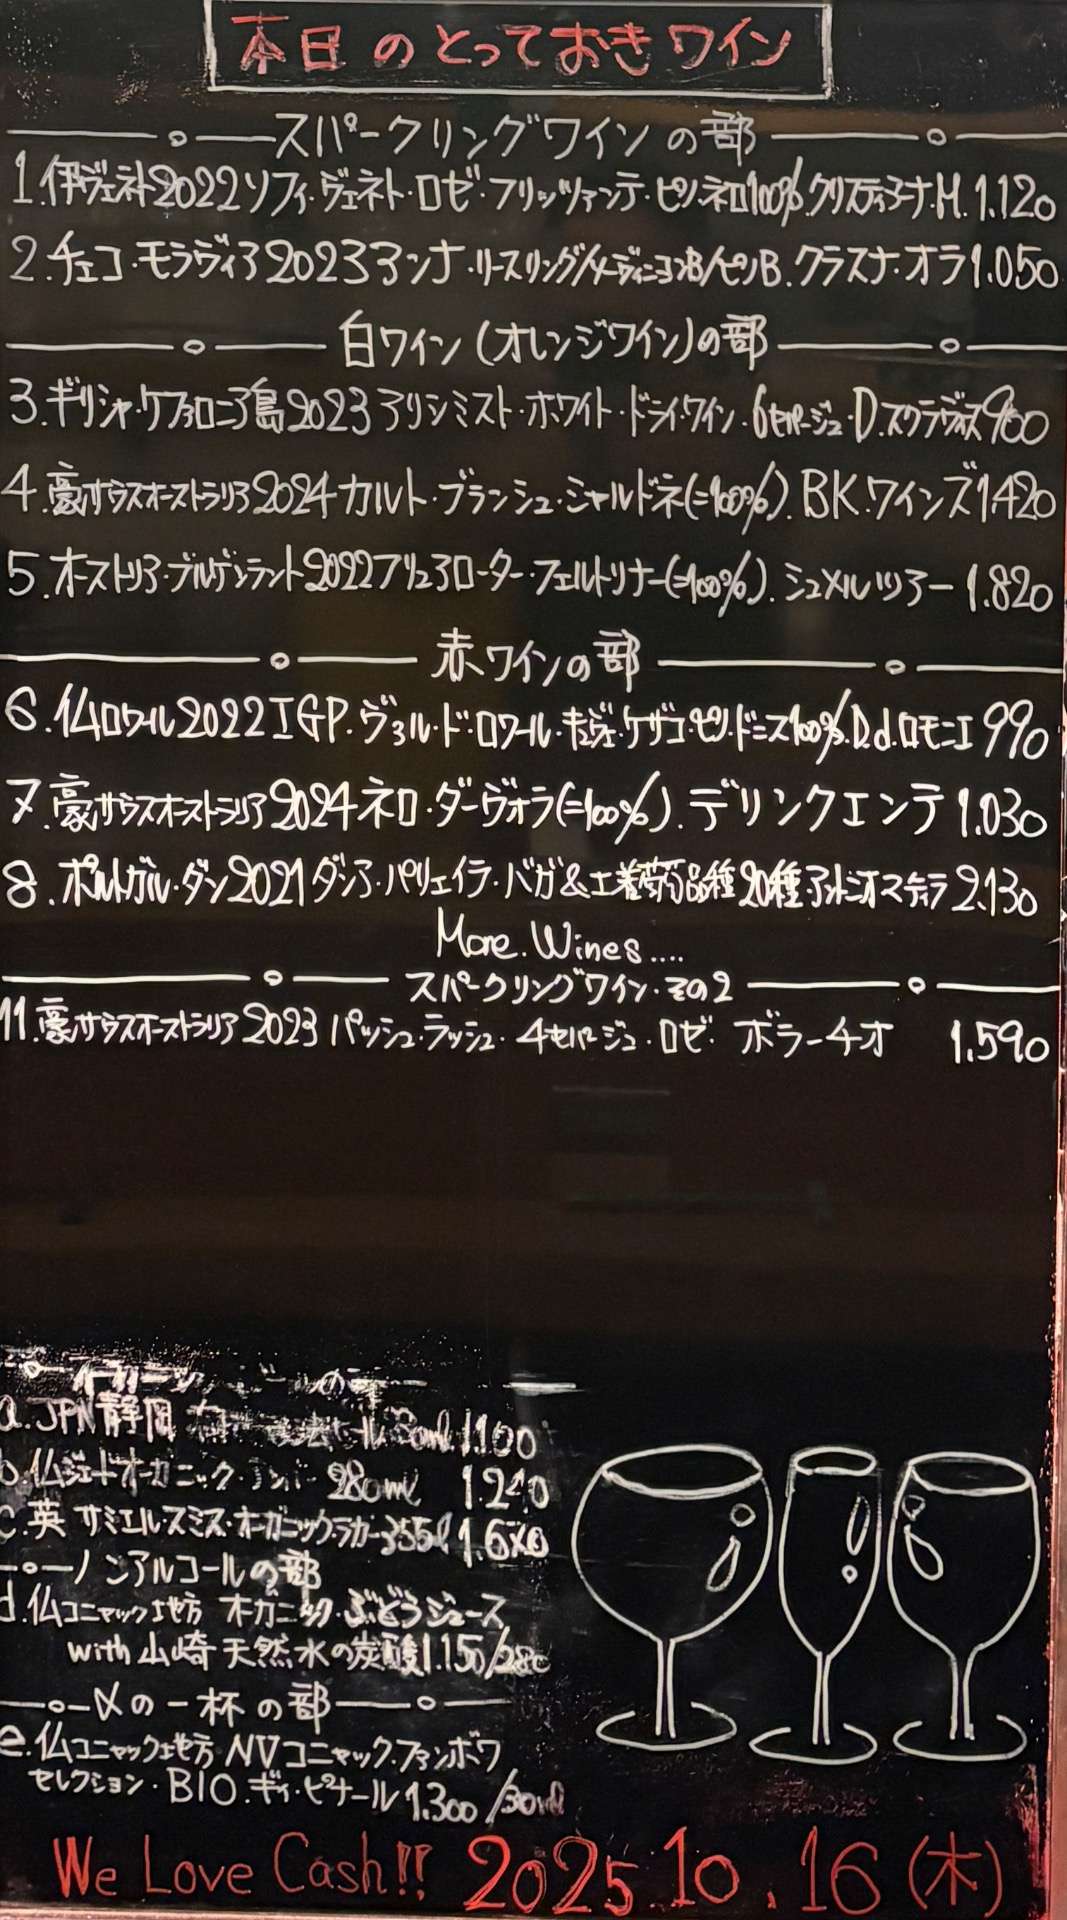 本日のとっておきワイン
スパークリングワインの部
1.伊ヴェネト2022ソフィ・ヴェネト・ロゼ・フリッツァンテ・ピノ・ネロ100%.クリスティアーナ.M. 1.120
2.チェコ・モラヴィア2023アンナ・リースリング/ソーヴィニヨンB/ピノB.クラスナ・オラ1.050
白ワイン(オレンジワイン)の部
3.ギリシャ・ケファロニア島2023アリシミスト・ホワイト・ドライ・ワイン.6セパージュ.D.スクラヴォス900
4.豪サウスオーストラリア2024カルト・ブランシュ・シャルドネ(=100%).BK.ワインズ1.420
5.オーストリア・ブルゲンラント2022フリュアローター・フェルトリナー(=100%).シュメルツアー 1.820
赤ワインの部
6.仏ロワール2022IGP.ヴァル・ド・ロワール・キュヴェ・ケザコ・ピノ・ドニス100%.D.d.ロモニエ 990
7.豪サウスオーストラリア2024ネロ・ダーヴォラ(=100%).デリンクエンテ 1.030
8.ポルトガル・ダン2021ダンア・パリェイラ・バガ&土着葡萄品種20種.アントニオマデイラ 2.130
More.Wines....
スパークリングワイン・その2
11.豪サウスオーストラリア2023パッシュ・ラッシュ・4セパージュ・ロゼ・ボラーチオ 1.590
の
a.JPN静岡 ール 1.100
b.仏ジェードオーガニック・アンバー 280ml 1.240
c.英 サミエル・スミス・オーガニックラガー355ml 1.6
ノンアルコールの部
d.仏コニャック地方 オーガニック・ぶどうジュース
with山崎天然水の炭酸1.150/280
〆の一杯の部
e.仏コニャック地方 NVコニャック・ファンボワ
セレクション・BIO.ギィ・ピナール 1.300/30ml
We Love Cash!! 2025.10.16(木)